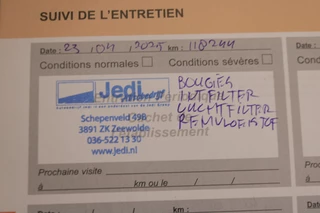 SUIVI DE L'ENTRETIEN
Date : 23 / 04 / 2025 km : 118244
Conditions normales
Conditions sévères
Jedi
Schepenveld 49B
3891 ZK Zeewolde
036-522 13 30
www.Jedi.nl
BOUGIES
INT FILTER
LUCHTFILTER
REMVLOEISTOF
Prochaine visite
à km ou le / /
Date :
Condit
Proch
à